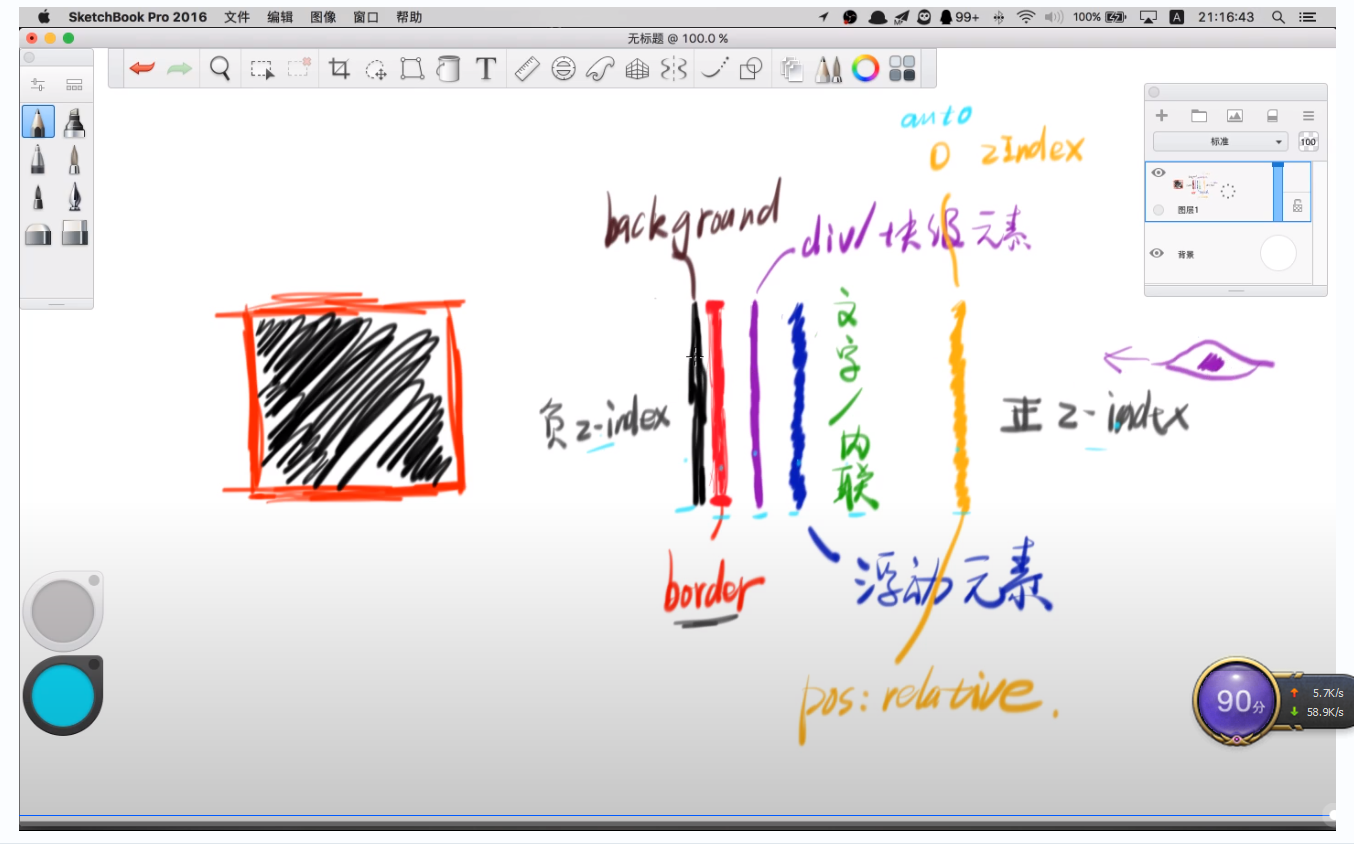 SketchBook Pro 2016 文件 编辑 图像 窗口 帮助 99+ 100% A 21:16:43
无标题 @ 100.0 %
T
标准 100
图层1
背景
auto
0 zIndex
background
div/块级元素
文字/内联
负z-index
正z-index
border
浮动元素
pos:relative.
90分
5.7K/s
58.9K/s